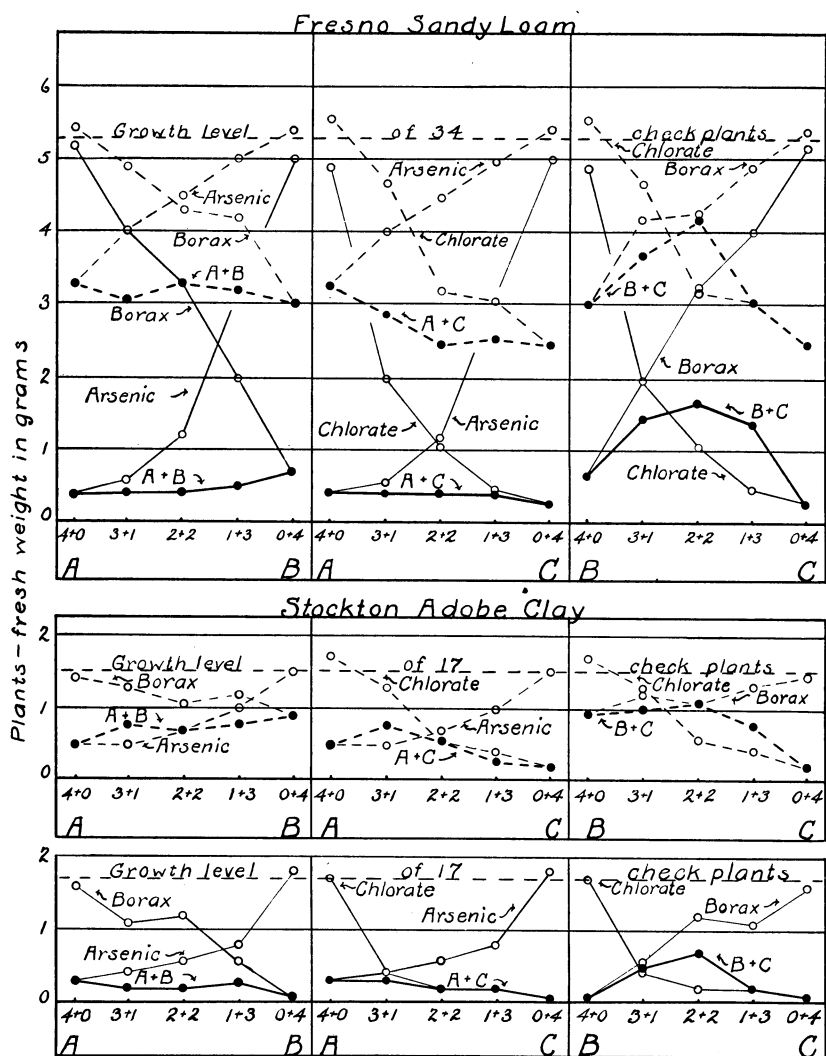 Fresno Sandy Loam
Plants-fresh weight in grams
6
5
4
3
2
1
0
Growth level of 34 check plants
Arsenic
Borax
A+B
Borax
Arsenic
A+B
4+0 3+1 2+2 1+3 0+4
A B
Arsenic
Chlorate
A+C
Chlorate
Arsenic
A+C
4+0 3+1 2+2 1+3 0+4
A C
Chlorate
Borax
B+C
Borax
B+C
Chlorate
4+0 3+1 2+2 1+3 0+4
B C
Stockton Adobe Clay
2
1
0
Growth level of 17 check plants
Borax
A+B
Arsenic
4+0 3+1 2+2 1+3 0+4
A B
Chlorate
Arsenic
A+C
4+0 3+1 2+2 1+3 0+4
A C
Chlorate
Borax
B+C
4+0 3+1 2+2 1+3 0+4
B C
2
1
0
Growth level of 17 check plants
Borax
Arsenic
A+B
4+0 3+1 2+2 1+3 0+4
A B
Chlorate
Arsenic
A+C
4+0 3+1 2+2 1+3 0+4
A C
Chlorate
Borax
B+C
4+0 3+1 2+2 1+3 0+4
B C